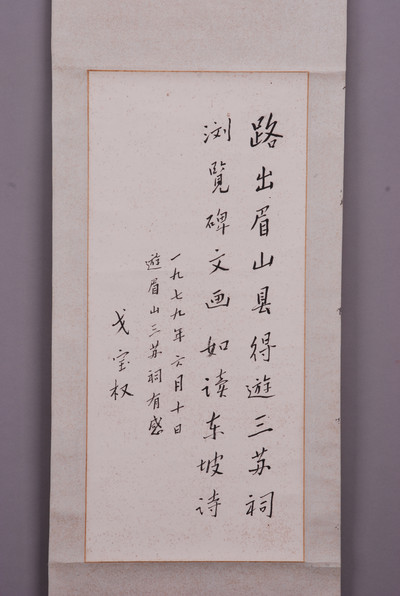 路出眉山县得遊三苏祠
浏覧碑文画如读东坡诗
一九七九年六月十日
遊眉山三苏祠有感
戈宝权